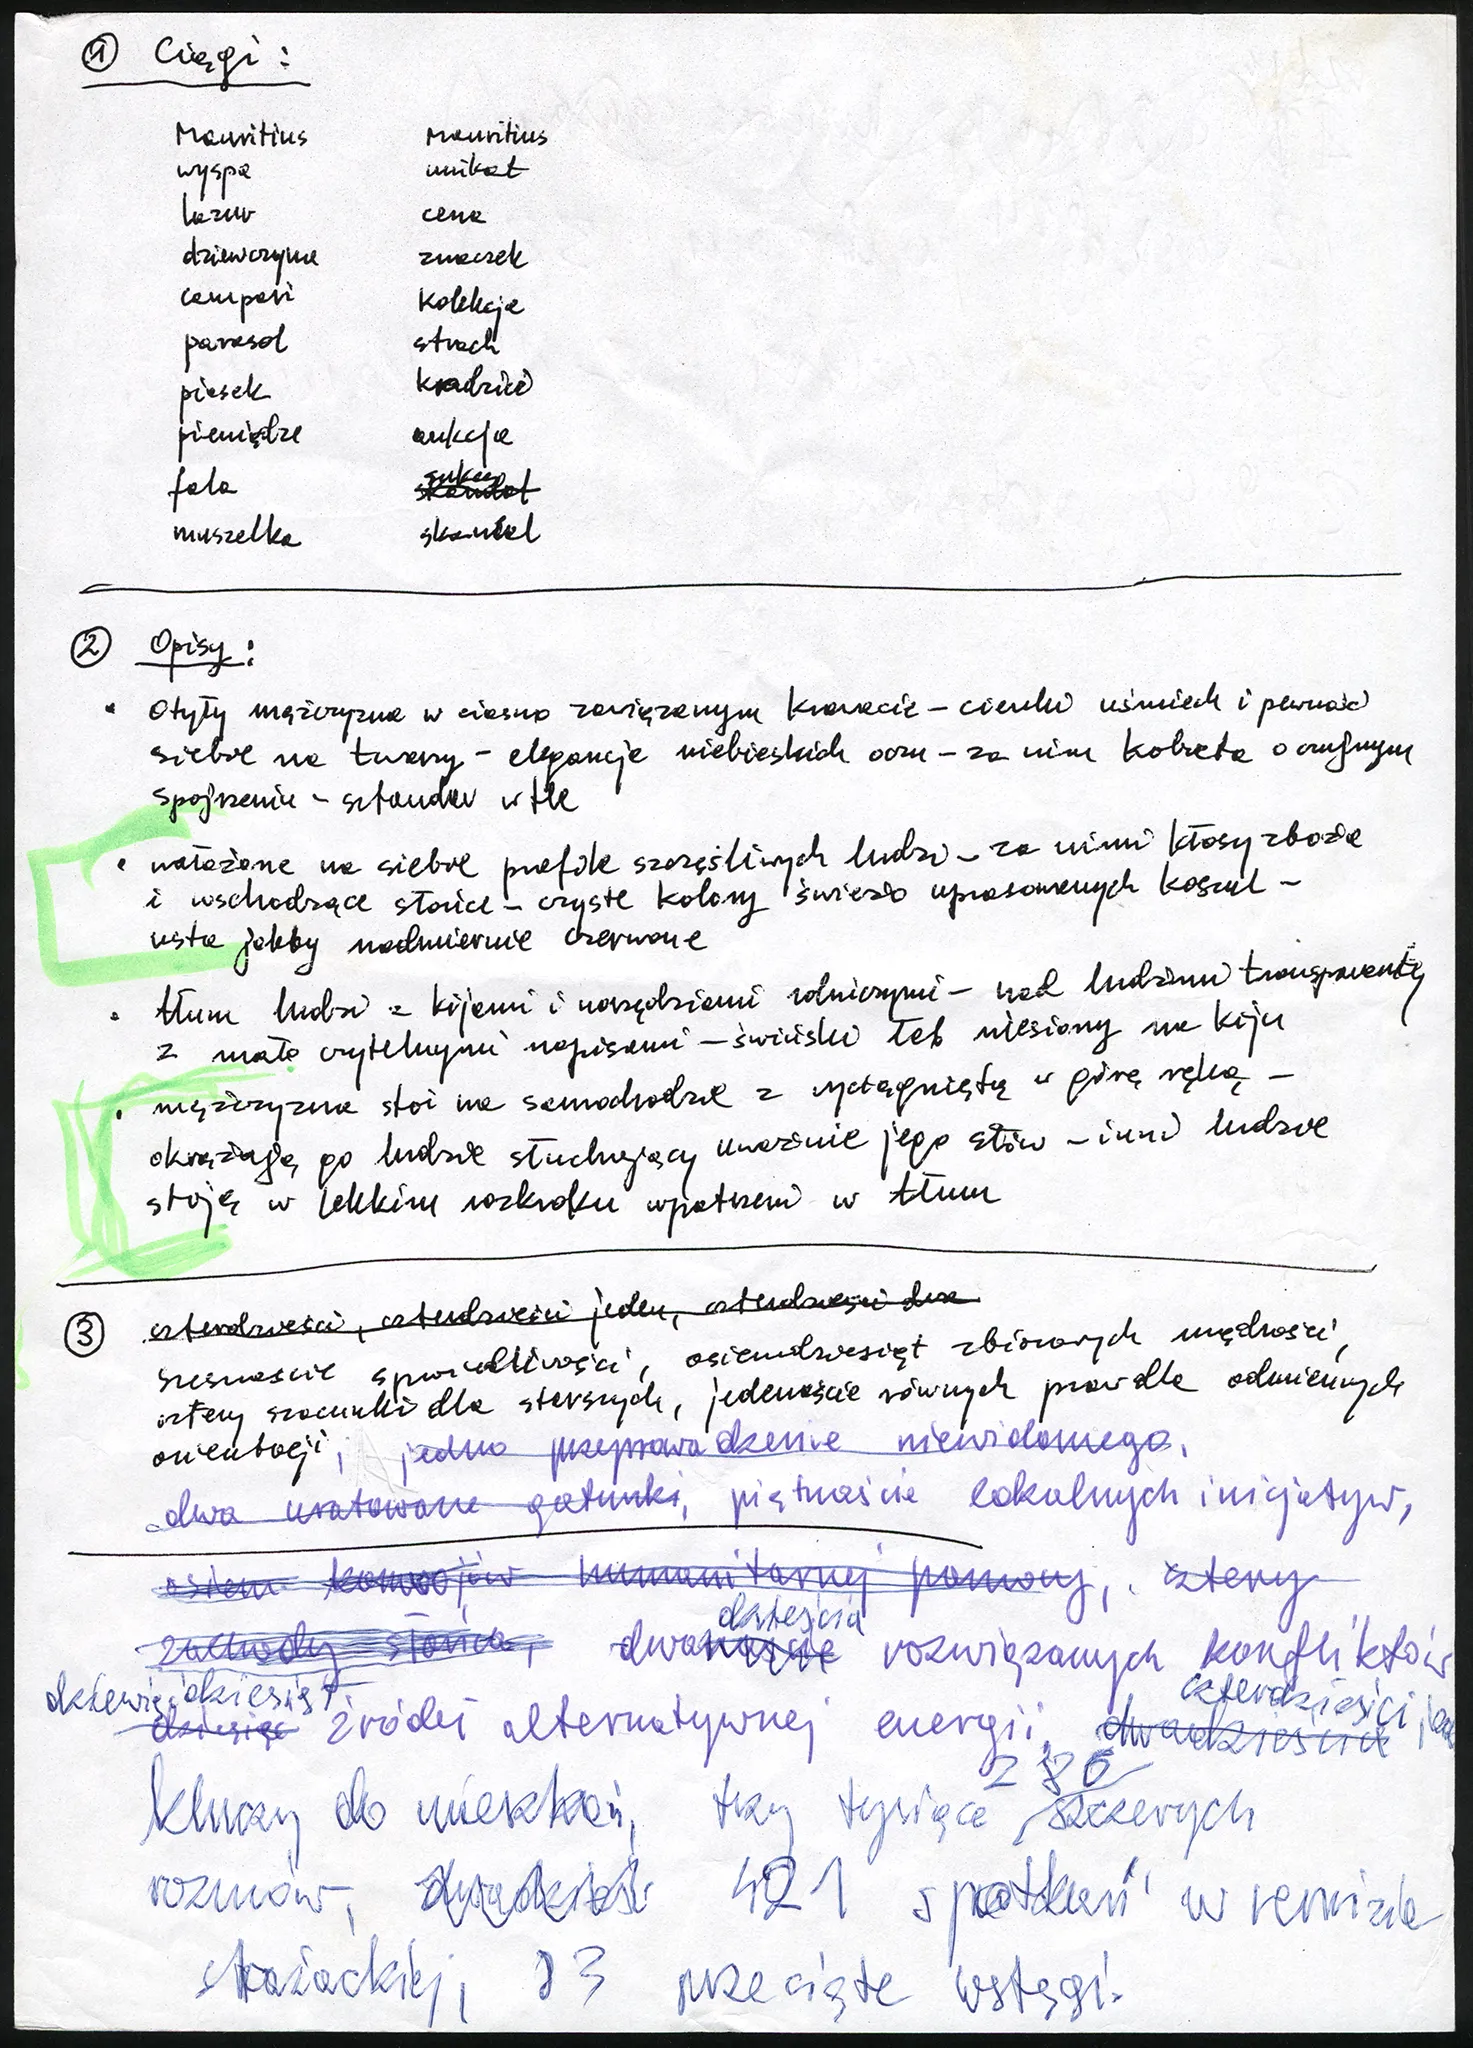 ① Ciągi:
Mauritius Mauritius
wyspa unikat
lazur cena
dziewczyna znaczek
campari kolekcja
parasol strach
piasek kradzież
pieniądze aukcja
fala skandal sukces
muszelka skandal
② Opisy:
• Otyły mężczyzna w ciasno zawiązanym krawacie – cienki uśmiech i pewność
siebie na twarzy – elegancja niebieskich oczu – za nim kobieta o czujnym
spojrzeniu – sztandar w tle
• nałożone na siebie profile szczęśliwych ludzi – za nimi kłosy zboża
i wschodzące słońce – czyste kolory świeżo uprasowanych koszul –
usta jakby nadmiernie czerwone
• tłum ludzi z kijami i narzędziami rolniczymi – nad ludźmi transparenty
z mało czytelnymi napisami – świński łeb niesiony na kiju
• mężczyzna stoi na samochodzie z wyciągniętą w górę ręką –
okrążają go ludzie słuchający uważnie jego słów – inni ludzie
stoją w lekkim rozkroku wpatrzeni w tłum
③ czterdzieści, czterdzieści jeden, czterdzieści dwa
szesnaście sprawiedliwości, osiemdziesiąt zbiorowych mądrości,
cztery szacunki dla starszych, jedenaście równych praw dla odmiennych
orientacji, jedno przeprowadzenie niewidomego,
dwa uratowane gatunki, piętnaście lokalnych inicjatyw,
osiem konwojów humanitarnej pomocy, cztery
dzieścia
zachody słońca, dwanaście rozwiązanych konfliktów
dziewięćdziesiąt czterdzieści
dziesięć źródeł alternatywnej energii, dwadzieścia
kluczy do mieszkań, trzy tysiące 286 szczerych
rozmów, 421 spotkań w remizie
strażackiej, 83 przecięte wstęgi.